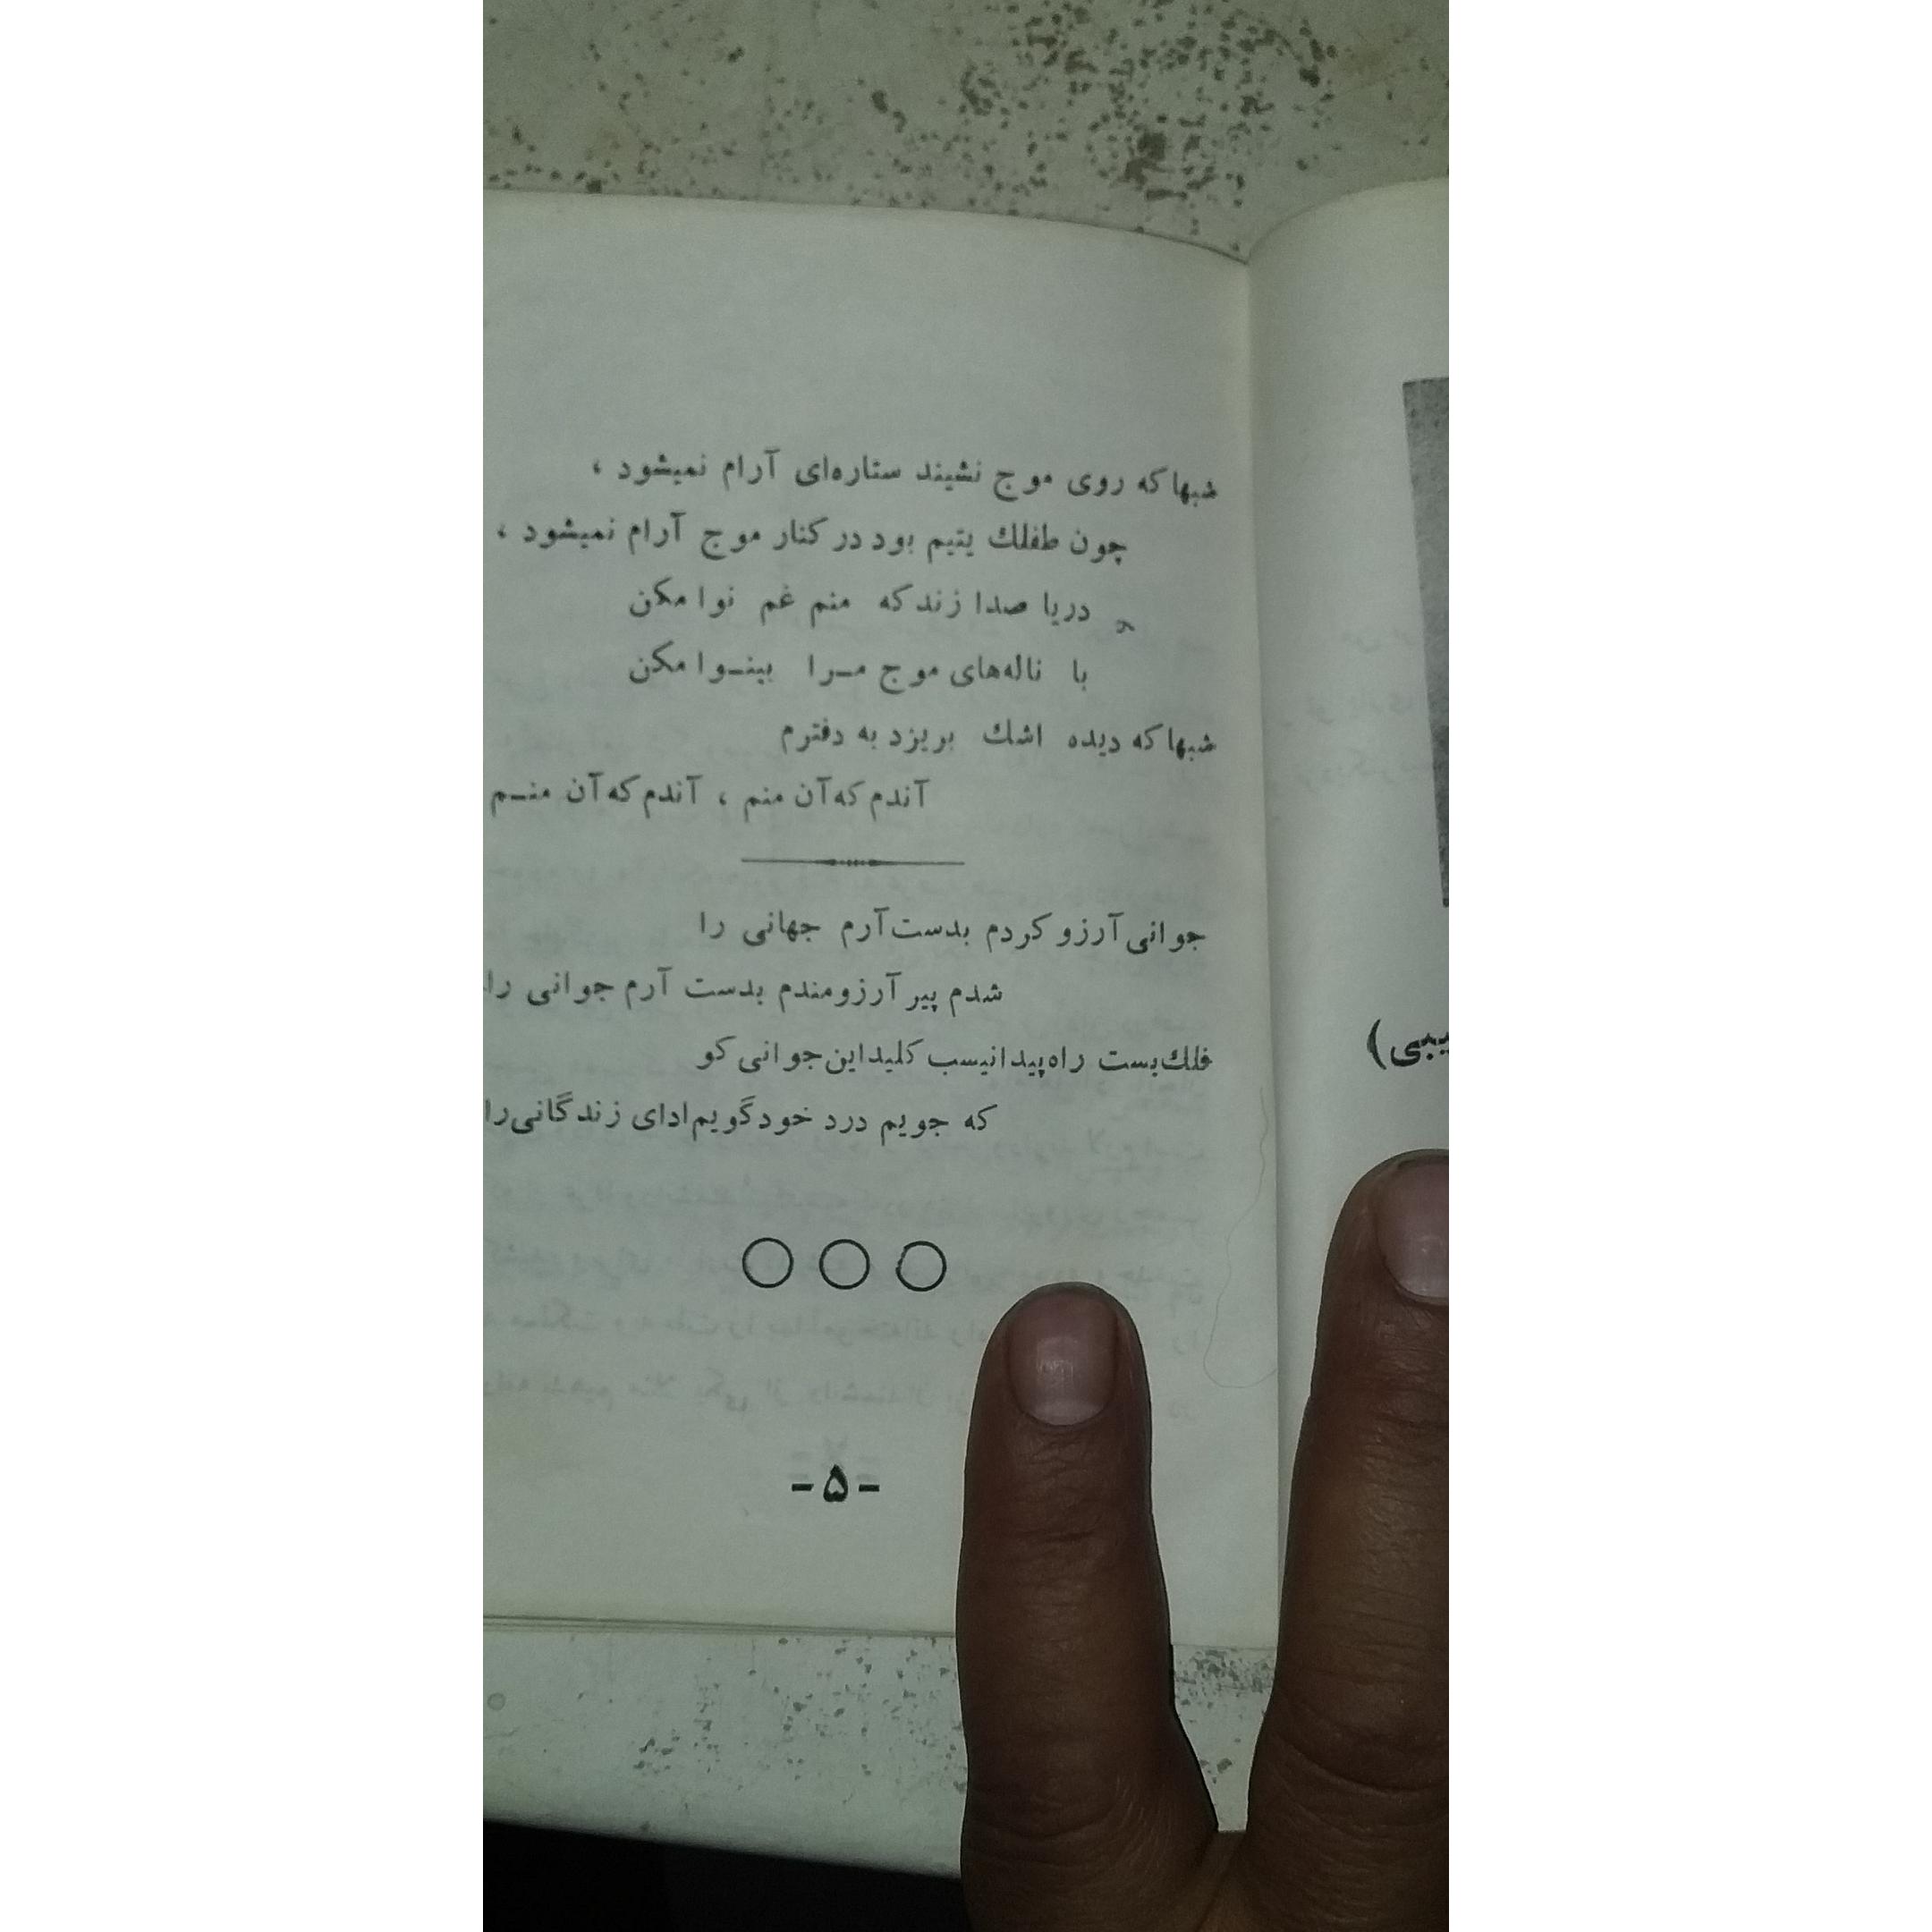 شبها که روی موج نشیند ستاره‌ای آرام نمیشود ،
چون طفلك یتیم بود در کنار موج آرام نمیشود ،
دریا صدا زند که منم غم نوا مکن
با ناله‌های موج مــرا بینــوا مکن
شبها که دیده اشك بریزد به دفترم
آندم که آن منم ، آندم که آن منــم
جوانی آرزو کردم بدست آرم جهانی را
شدم پیر آرزومندم بدست آرم جوانی را
فلك بست راه پیدا نیسب کلید این جوانی کو
که جویم درد خود گویم ادای زندگانی را
-۵-